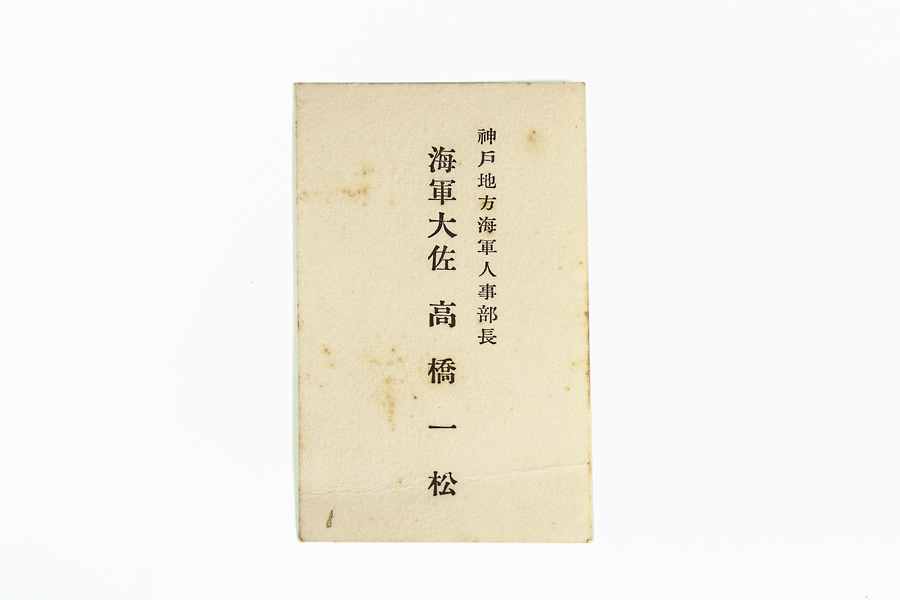 神戸地方海軍人事部長
海軍大佐 高橋一松